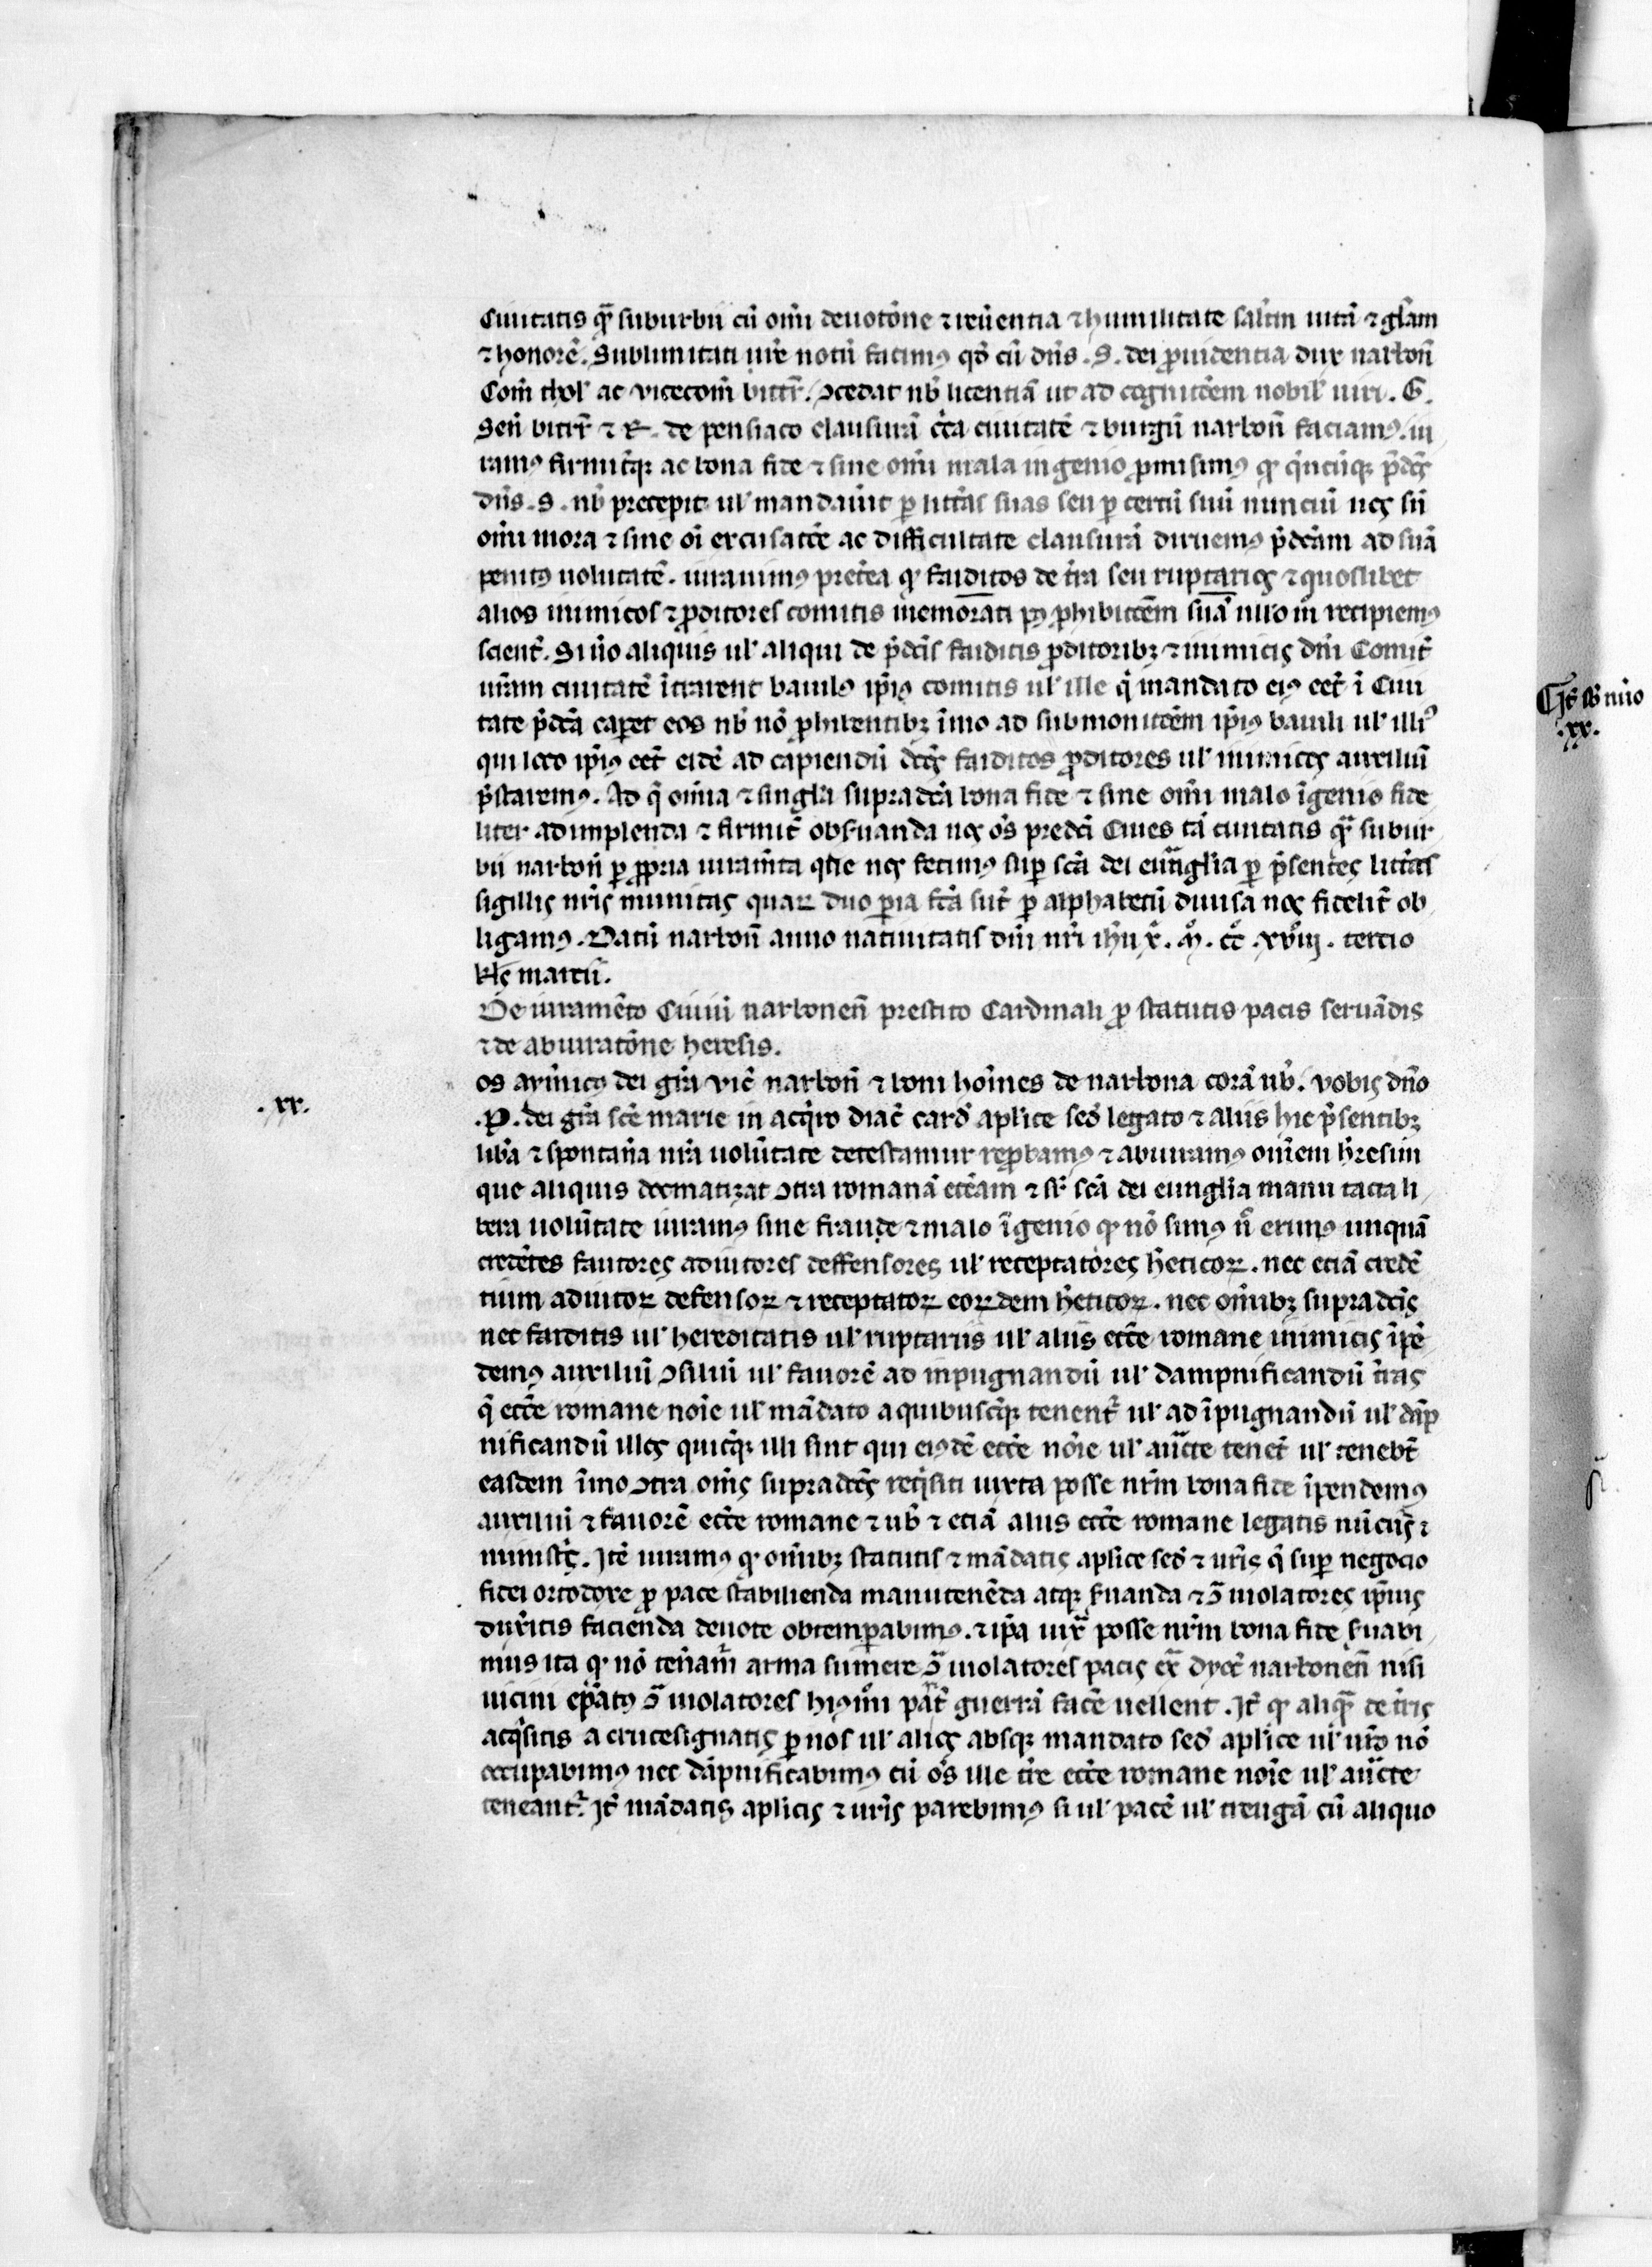 Ciuitatis qͣ suburbii cū oī͞m deuotōne ⁊ reūentia ⁊ humilitate saltm̄ uitā ⁊ glām
⁊ honorē. Sublimitati ur̄e notū facimus qd̄ cū dn̄s .S. dei ꝓuidentia dux narbon̄
Com̄ thol' ac vicecom̄ bittr̄. ↄcedat nb̄ licentiā ut ad cognitōem nobil' uiri .G.
Sen̄ bittr̄ ⁊ R. de pensiaco clausurā cc̄a ciuitatē ⁊ burgū narbon̄ faciamꝰ. iu
ramꝰ firmit̄qꝫ ac bona fide ⁊ sine om̄i mala ingenio ꝓmisimꝰ qͦ qn̄cūqꝫ p̄dc̄s
dn̄s .S. nb̄ precepit ul' mandauit ꝑ litt̄as suas seu ꝑ certū suū nunciū nos sn̄
om̄i mora ⁊ sine oī excusatōe ac difficultate clausurā diruemꝰ p̄dc̄am ad suā
penitꝰ uolūtatē. iurauimꝰ pret̄ea qͦ faiditos de tr̄a seu ruptarios ⁊ quoslibet
alios inimicos ⁊ ꝓditores comitis memorati pꝰ ꝓhibitōem suā nllo mͦ recipiemꝰ
scient̄. Si uͦo aliquis ul' aliqui de p̄dc̄is faiditis ꝓditoribꝫ ⁊ inimicis dn̄i Comit̄
nr̄am ciuitatē ītrarent baiulꝰ ip̄ius comitis ul' ille qͥ mandato eiꝰ eēt ī Ciui
tate p̄dc̄a caꝑet eos nb̄ nō ꝓhibentibꝫ īmo ad submonitōem ip̄ius baiuli ul' illiꝰ
qui loco ip̄ius eēt eidē ad capiendū dc̄os faiditos ꝓditores ul' inimicos auxiliū
p̄staremꝰ. Ad q̄ om̄ia ⁊ singl'a supradc̄a bona fide ⁊ sine om̄i malo īgenio fide
liter adimplenda ⁊ firmit̄ obs̄uanda nos oēs predc̄i Ciues tā ciuitatis qͣ subur
bii narbon̄ ꝑ ꝓpria iuram̄ta que nos fecimꝰ suꝑ sc̄a dei euāglia ꝑ p̄sentes litt̄as
sigillis nr̄is munitas quaꝝ duo ꝑia fc̄a sūt ꝑ alphabetū diuisa nos fidelit̄ ob
ligamꝰ. Datū narbon̄ anno natiuitatis dn̄i nr̄i ih̄u x̄. mͦ. ccͦ. xvͦiij. tercio
kl's marcii.
De iuramēto Ciuiū narbonen̄ prestito Cardinali ꝓ statutis pacis seruādis
⁊ de abiuratōne heresis.
.xx.
os aym̄icꝰ dei gr̄a vic̄ narbon̄ ⁊ boni hoīes de narbona corā nb̄. vobis dn̄o
.P. dei gr̄a sc̄e marie in acqͥro diac̄ card̄ aplice sed̄ legato ⁊ aliis hic p̄sentibꝫ
lib̄a ⁊ spontan̄a nr̄a uolūtate detestamur reꝓbamꝰ ⁊ abiuramꝰ om̄em h̄resim
que aliquis docmatizat ↄtra romanā ecc̄am ⁊ sr̄ sc̄a dei euu̅glia manu tacta li
bera uolūtate iuramꝰ sine fraude ⁊ malo īgenio qͦ nō simꝰ n̄ erimꝰ unquā
credētes fautores adiutores deffensores ul' receptatores h̄eticoꝝ. nec etiā credē
tium adiutoꝝ defensoꝝ ⁊ receptatoꝝ eoꝝdem h̄eticoꝝ. nec om̄ibꝫ supradc̄is
nec faiditis ul' hereditatis ul' ruptariis ul' aliis ecc̄e romane inimicis īpē
demꝰ auxiliū ↄsiliū ul' fauorē ad inpugnandū ul' dampnificandū tr̄as
q̄ ecc̄e romane noīe ul' mādato a quibuscūqꝫ tenent̄ ul' ad īpugnandū ul' dāp
nificandū illos quicūqꝫ illi sint qui eiꝰdē ecc̄e noīe ul' auc̄te tenēt ul' tenebt̄
easdem īmo ↄtra om̄s supradc̄os reqͥsiti iuxta posse nr̄m bona fide īpendemꝰ
auxiliū ⁊ fauorē ecc̄e romane ⁊ ub̄ ⁊ etiā aliis ecc̄e romane legatis nūciis ⁊
ministͥs. Itē iuramꝰ qͦ om̄ibꝫ statutis ⁊ mādatis aplice sed̄ ⁊ ur̄is q̄ suꝑ negocio
fidei ortodoxe ꝓ pace stabilienda manutenēda atqꝫ s̄uanda ⁊ ↄͣ uiolatores ip̄ius
dux̄itis facienda deuote obtemꝑabimꝰ. ⁊ ip̄a iuxͣ posse nr̄m bona fide s̄uabi
mus ita qͦ nō ten̄am̄ arma sumere ↄͣ uiolatores pacis exͣ dyoc̄ narbonen̄ nisi
uicini ep̄atꝰ ↄͣ uiolatores hiꝰmōi pat̄ guerrā facē uellent. It̄ qͦ aliqͣ de tr̄is
acqͥsitis a crucesignatis ꝑ nos ul' alios absqꝫ mandato sed̄ aplice ul' ur̄o nō
occupabimꝰ nec dāpnificabimꝰ cū oēs ille tr̄e ecc̄e romane noīe ul' auc̄te
teneant̄. It̄ mādatis aplicis ⁊ ur̄is parebimꝰ si ul' pacē ul' treugā cū aliquo
.xx.